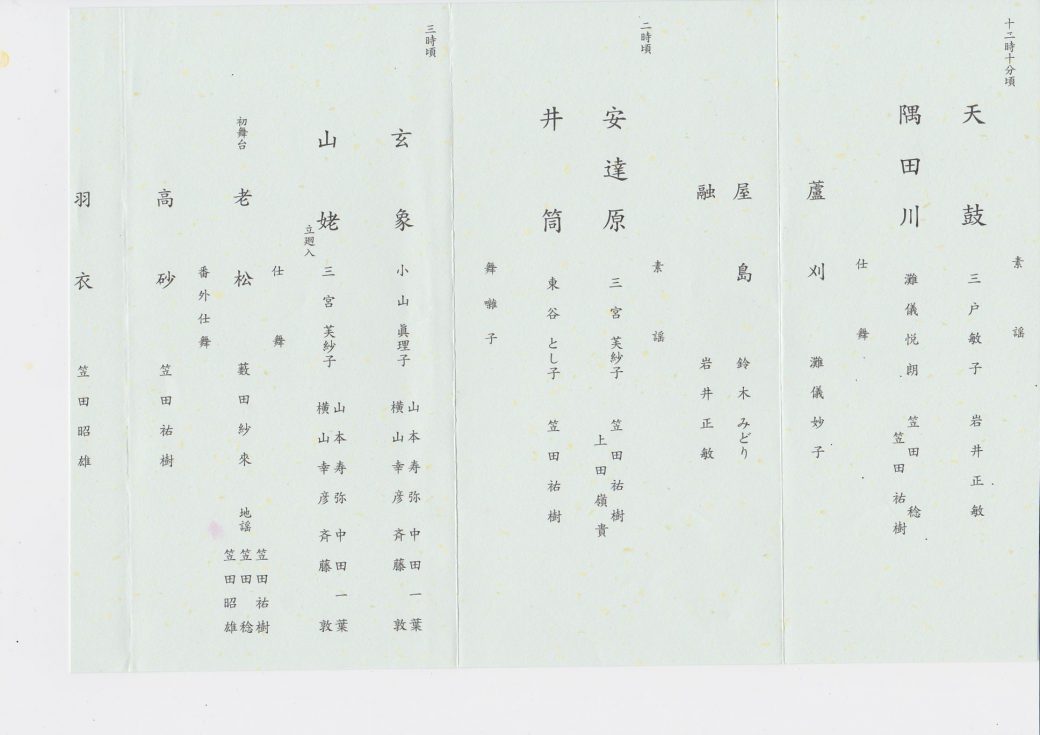 十二時十分頃
素謡
天鼓 三戸敏子 岩井正敏
隅田川 灘儀悦朗 笠田稔
笠田祐樹
仕舞
蘆刈 灘儀妙子
屋島 鈴木みどり
融 岩井正敏
二時頃
素謡
安達原 三宮芙紗子 笠田祐樹
上田嶺貴
井筒 東谷とし子 笠田祐樹
舞囃子
三時頃
玄象 小山眞理子 山本寿弥 中田一葉
横山幸彦 斉藤敦
山姥 立廻入 三宮芙紗子 山本寿弥 中田一葉
横山幸彦 斉藤敦
仕舞
初舞台 老松 藪田紗來 地謡 笠田祐樹
笠田稔
笠田昭雄
番外仕舞
高砂 笠田祐樹
羽衣 笠田昭雄